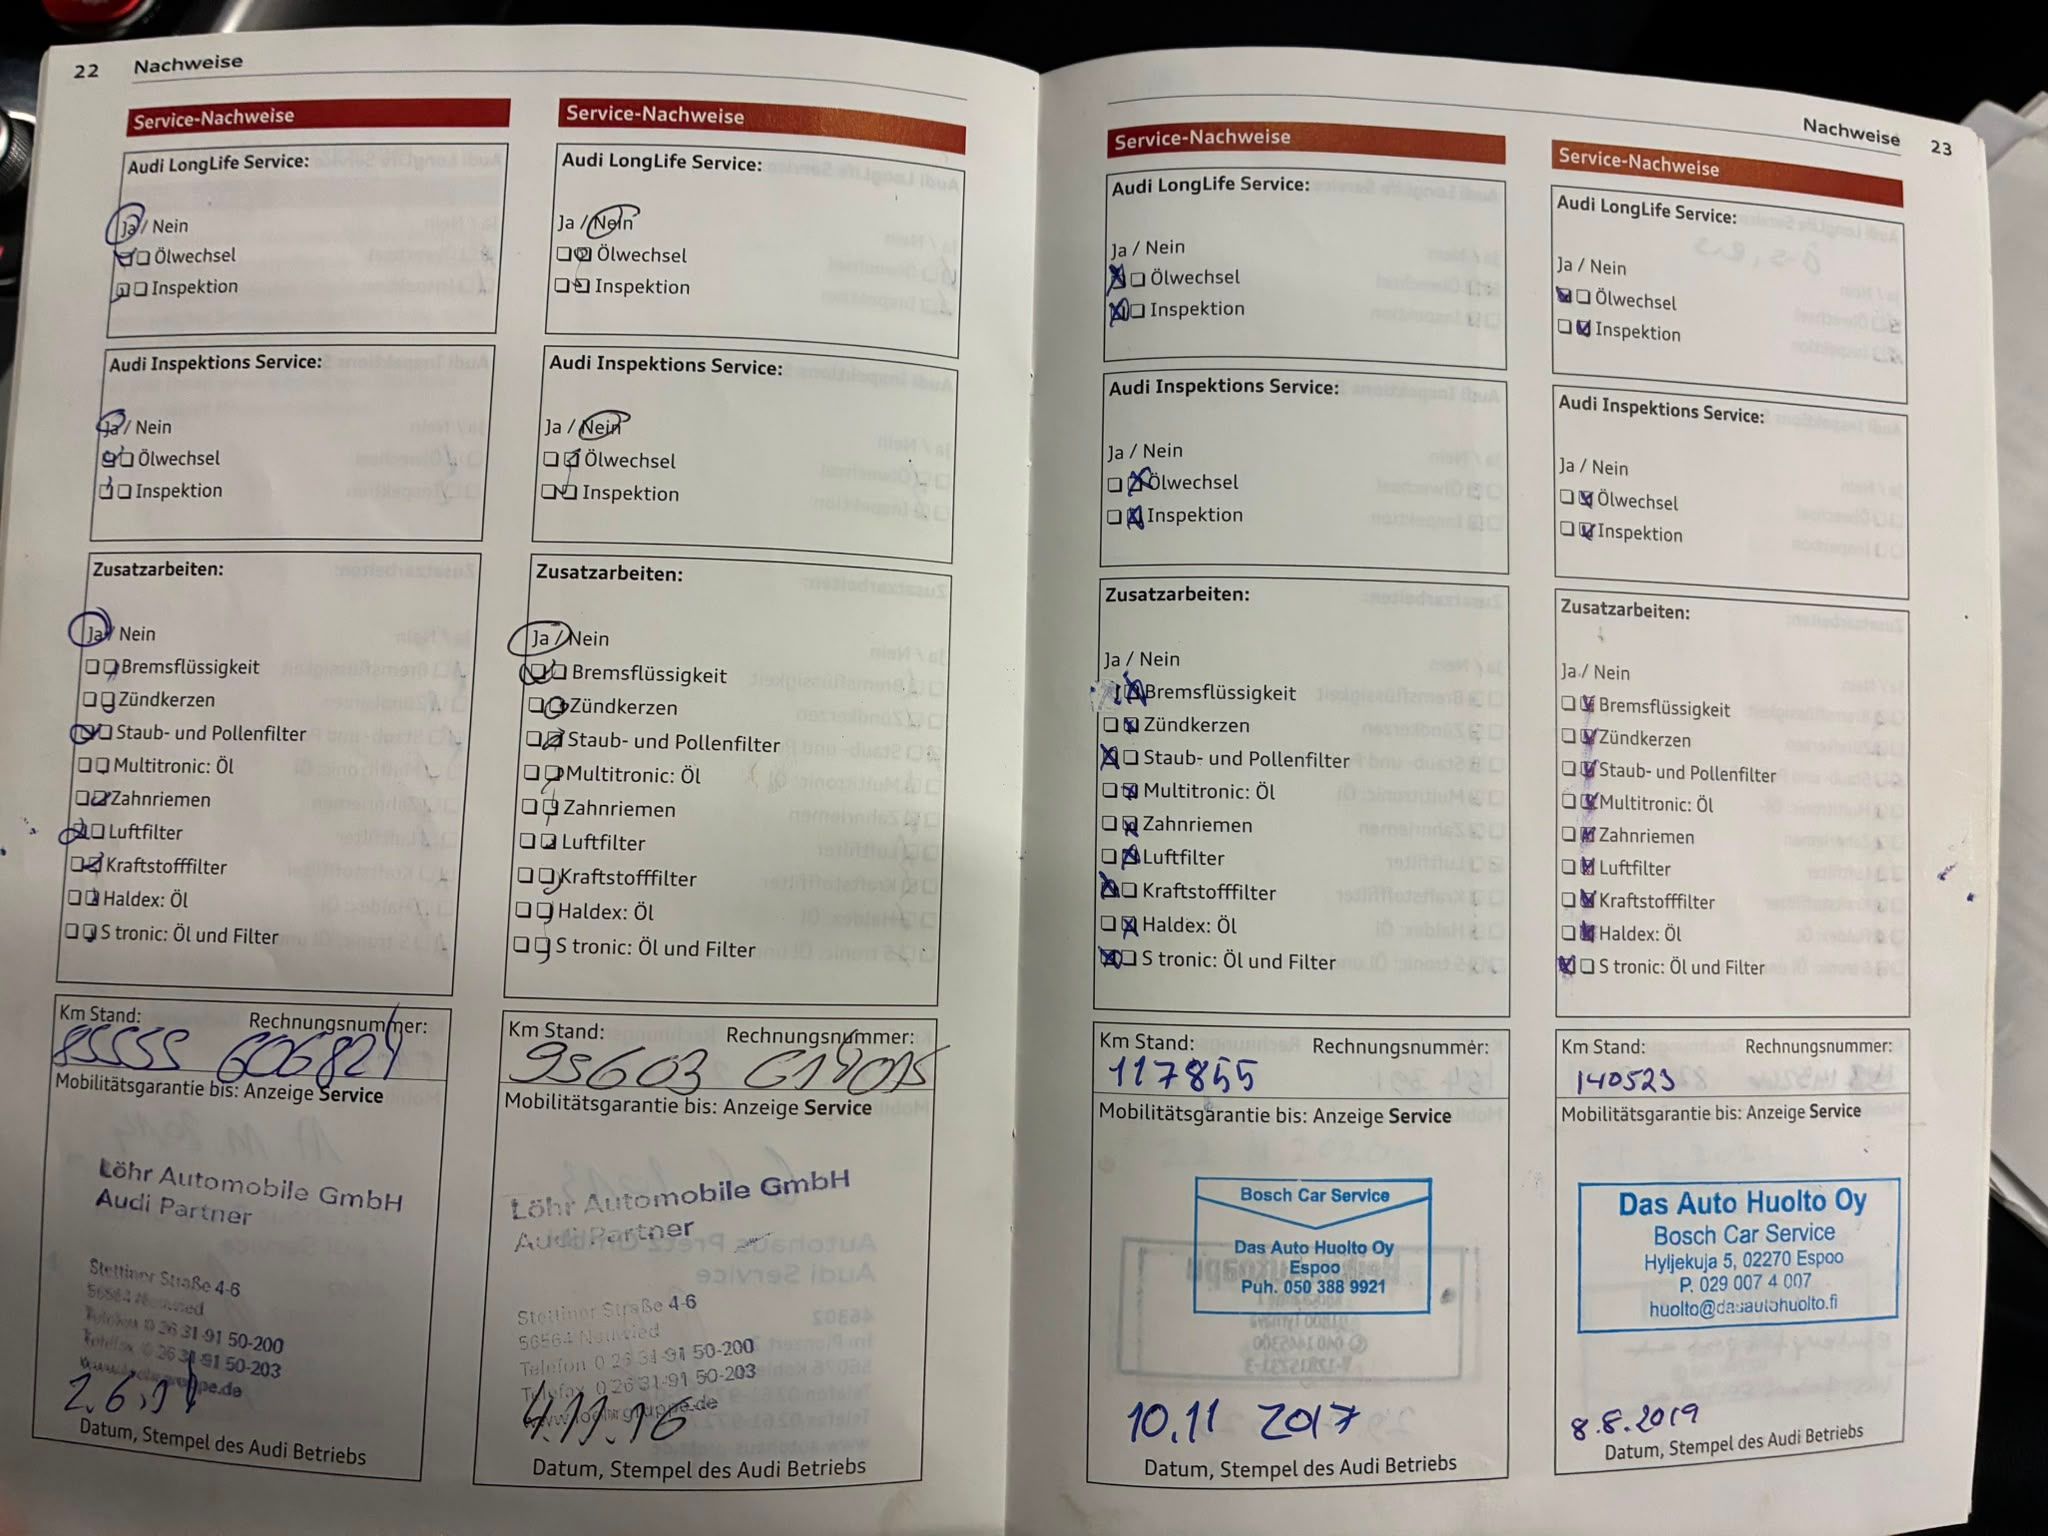 22 Nachweise
Service-Nachweise
Audi LongLife Service:
Ja / Nein
Ölwechsel
Inspektion
Audi Inspektions Service:
Ja / Nein
Ölwechsel
Inspektion
Zusatzarbeiten:
Ja / Nein
Bremsflüssigkeit
Zündkerzen
Staub- und Pollenfilter
Multitronic: Öl
Zahnriemen
Luftfilter
Kraftstofffilter
Haldex: Öl
S tronic: Öl und Filter
Km Stand: Rechnungsnummer:
85555 606824
Mobilitätsgarantie bis: Anzeige Service
Löhr Automobile GmbH
Audi Partner
Stettiner Straße 4-6
56564 Neuwied
Telefon 0 26 31-91 50-200
Telefax 0 26 31-91 50-203
Datum, Stempel des Audi Betriebs
Service-Nachweise
Audi LongLife Service:
Ja / Nein
Ölwechsel
Inspektion
Audi Inspektions Service:
Ja / Nein
Ölwechsel
Inspektion
Zusatzarbeiten:
Ja / Nein
Bremsflüssigkeit
Zündkerzen
Staub- und Pollenfilter
Multitronic: Öl
Zahnriemen
Luftfilter
Kraftstofffilter
Haldex: Öl
S tronic: Öl und Filter
Km Stand: Rechnungsnummer:
95603
Mobilitätsgarantie bis: Anzeige Service
Löhr Automobile GmbH
Audi Partner
Stettiner Straße 4-6
56564 Neuwied
Telefon 0 26 31-91 50-200
Telefax 0 26 31-91 50-203
4.11.16
Datum, Stempel des Audi Betriebs
Nachweise 23
Service-Nachweise
Audi LongLife Service:
Ja / Nein
Ölwechsel
Inspektion
Audi Inspektions Service:
Ja / Nein
Ölwechsel
Inspektion
Zusatzarbeiten:
Ja / Nein
Bremsflüssigkeit
Zündkerzen
Staub- und Pollenfilter
Multitronic: Öl
Zahnriemen
Luftfilter
Kraftstofffilter
Haldex: Öl
S tronic: Öl und Filter
Km Stand: Rechnungsnummer:
117855
Mobilitätsgarantie bis: Anzeige Service
Bosch Car Service
Das Auto Huolto Oy
Espoo
Puh. 050 388 9921
10.11 2017
Datum, Stempel des Audi Betriebs
Service-Nachweise
Audi LongLife Service:
Ja / Nein
Ölwechsel
Inspektion
Audi Inspektions Service:
Ja / Nein
Ölwechsel
Inspektion
Zusatzarbeiten:
Ja / Nein
Bremsflüssigkeit
Zündkerzen
Staub- und Pollenfilter
Multitronic: Öl
Zahnriemen
Luftfilter
Kraftstofffilter
Haldex: Öl
S tronic: Öl und Filter
Km Stand: Rechnungsnummer:
140523
Mobilitätsgarantie bis: Anzeige Service
Das Auto Huolto Oy
Bosch Car Service
Hyljekuja 5, 02270 Espoo
P. 029 007 4 007
huolto@dasautohuolto.fi
8.8.2019
Datum, Stempel des Audi Betriebs